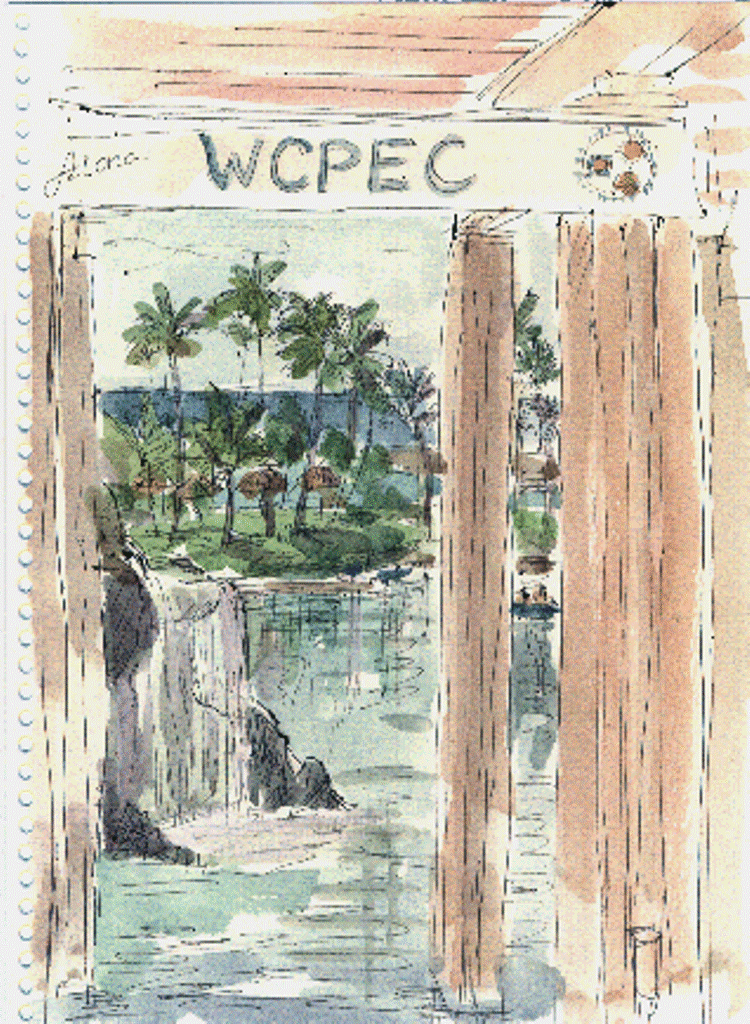 Aloha WCPEC